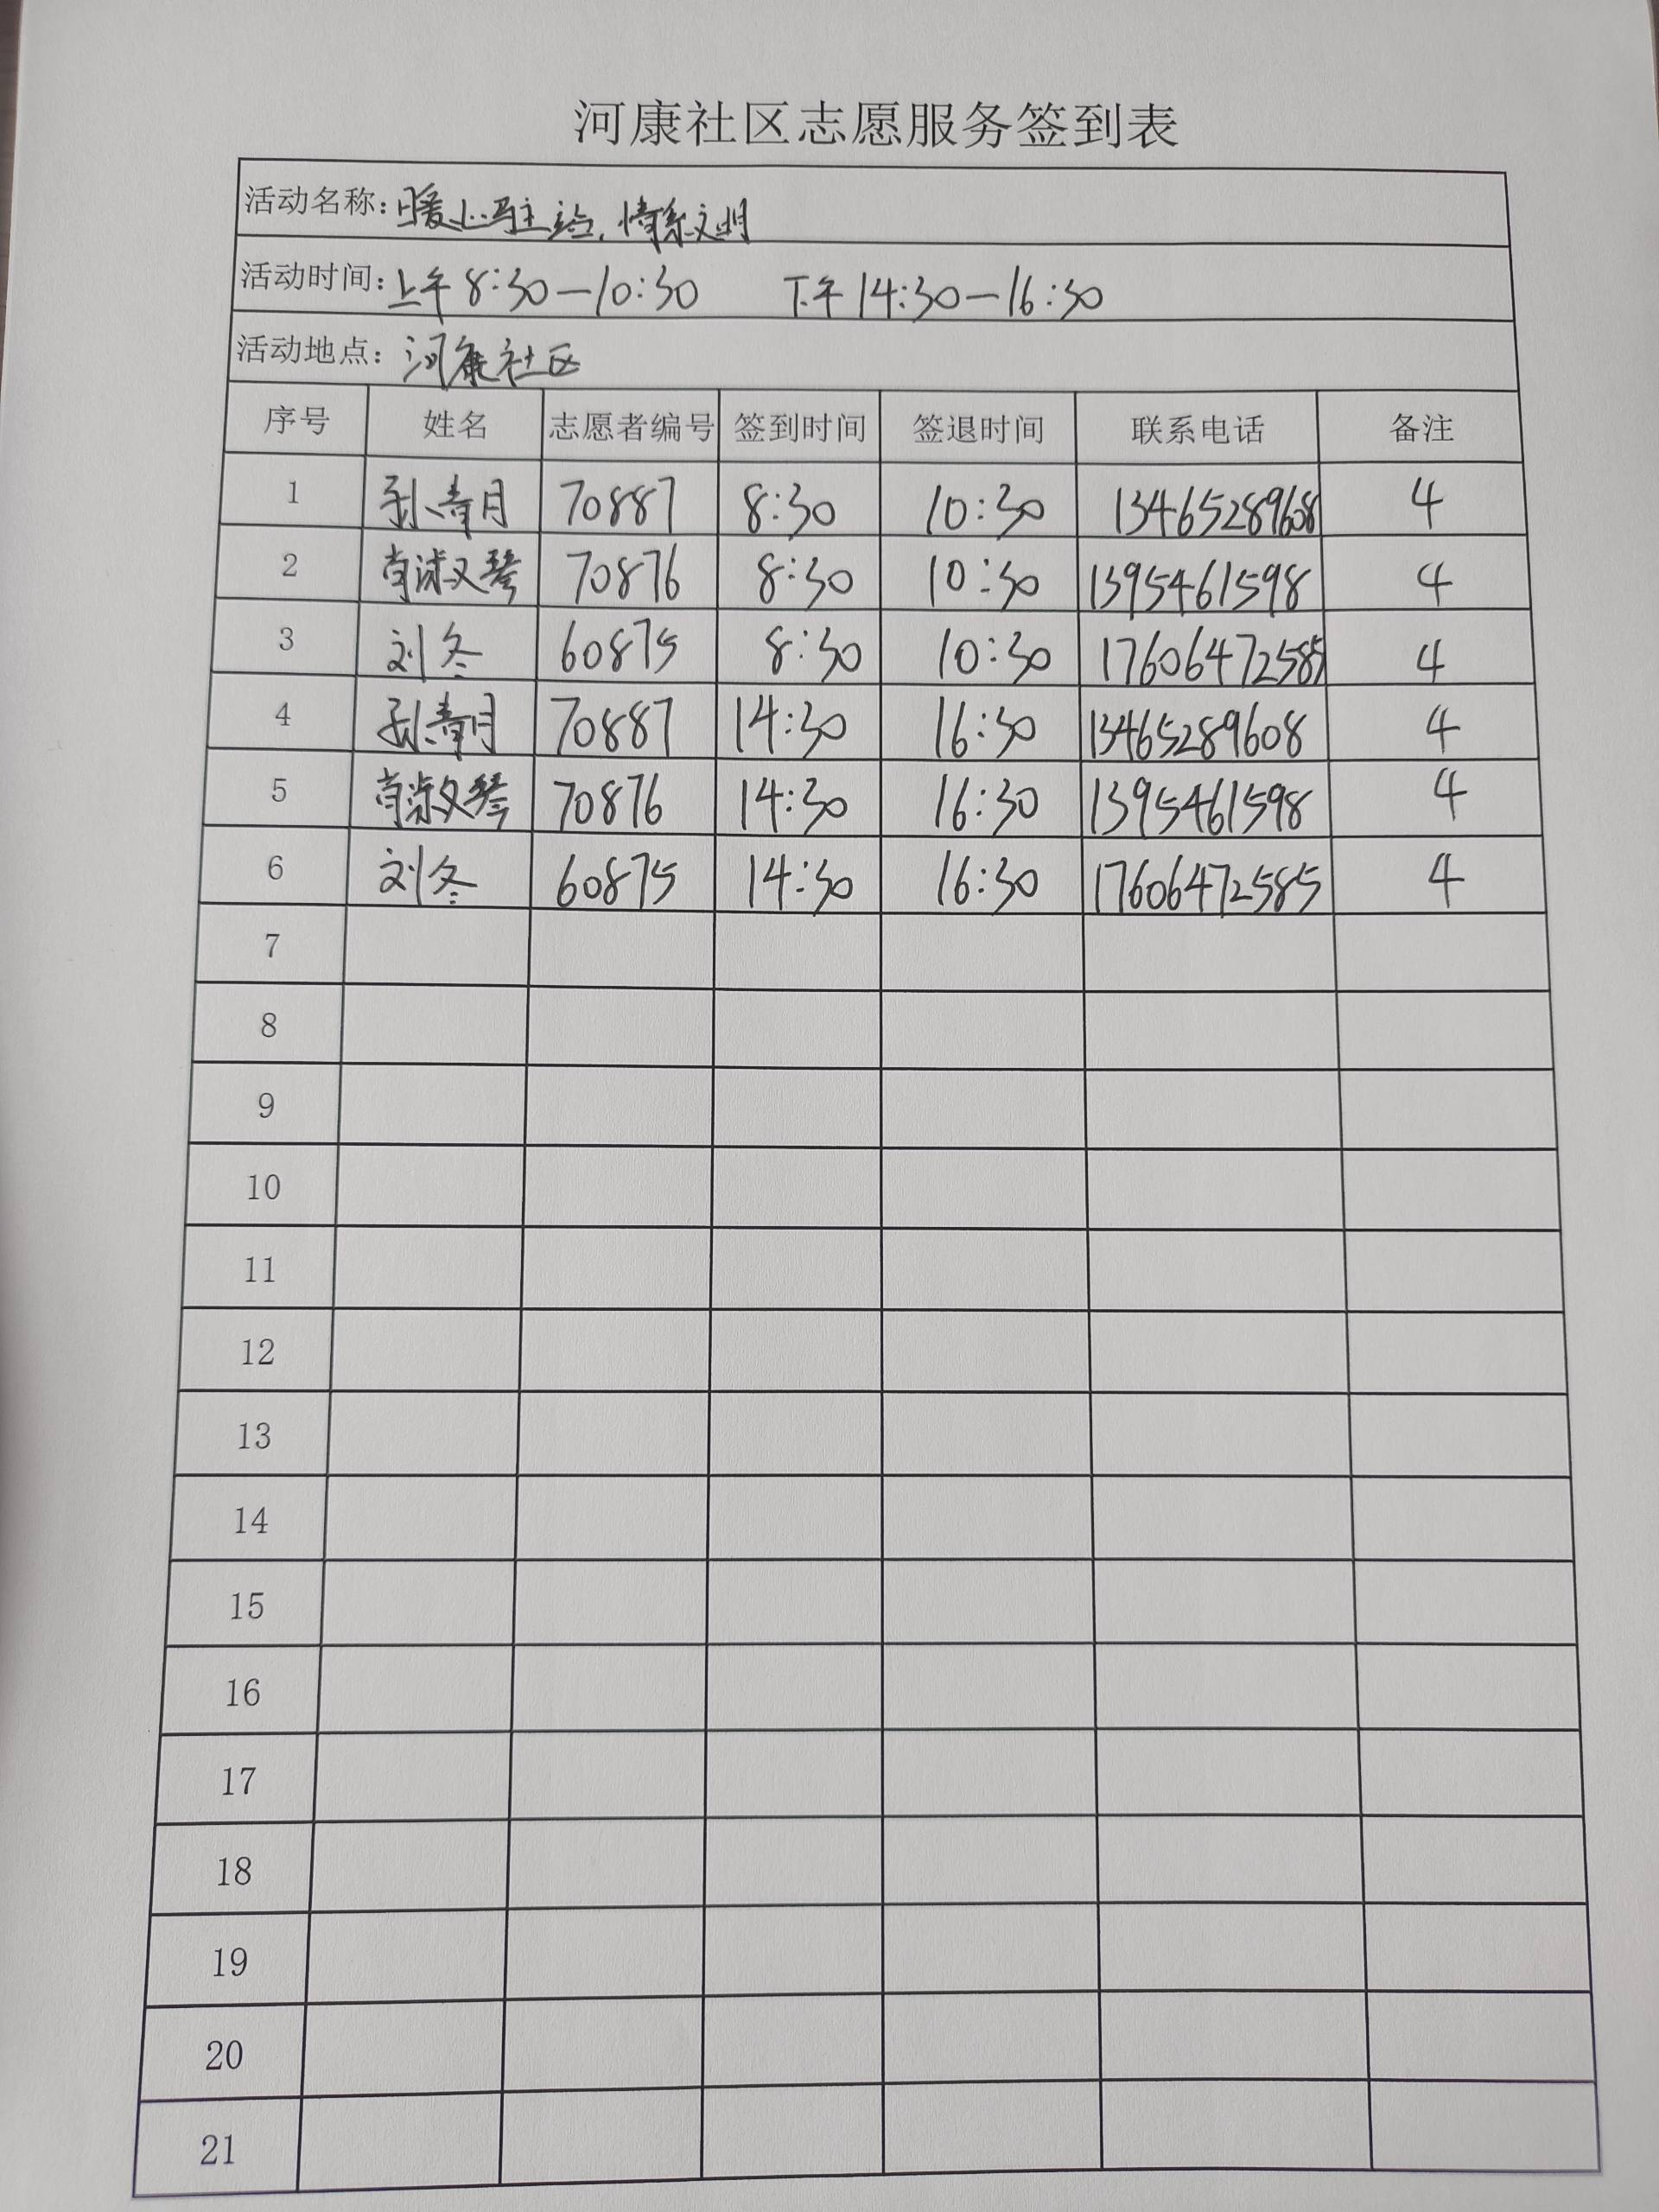 河康社区志愿服务签到表
活动名称:暖心驻站,情系文明
活动时间:上午8:30—10:30 下午14:30—16:30
活动地点:河康社区
序号 姓名 志愿者编号 签到时间 签退时间 联系电话 备注
1 孙青月 70887 8:30 10:30 13465289608 4
2 肖淑琴 70876 8:30 10:30 1395461598 4
3 刘冬 60875 8:30 10:30 17606472585 4
4 孙青月 70887 14:30 16:30 13465289608 4
5 肖淑琴 70876 14:30 16:30 1395461598 4
6 刘冬 60875 14:30 16:30 17606472585 4
7
8
9
10
11
12
13
14
15
16
17
18
19
20
21